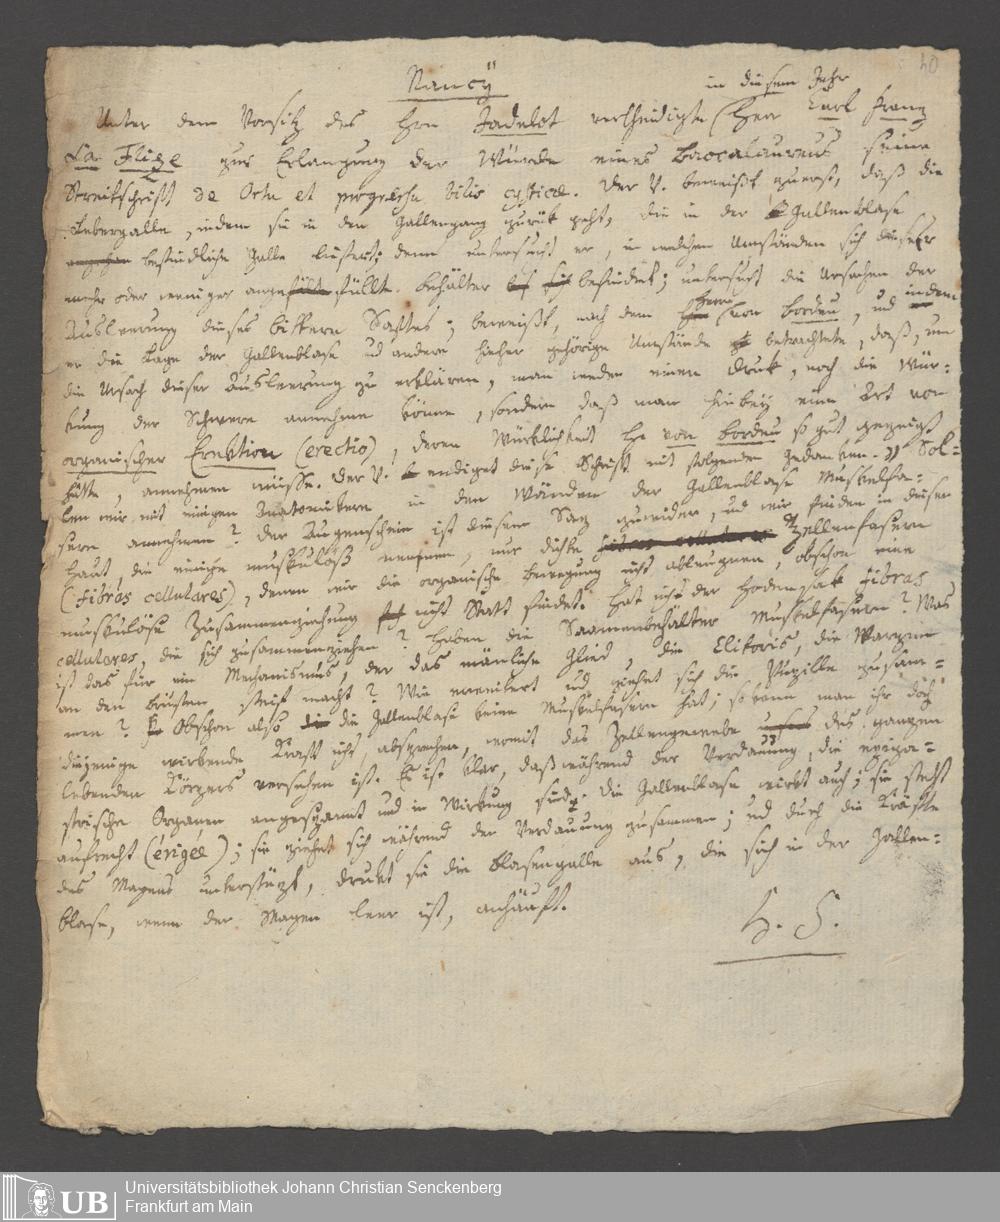 40
Nancÿ
in diesem Jahr
Unter dem Vorsitz des Hrn Jadelot vertheidigte Herr Carl Franz
La Flize zur Erlangung der Würde eines Baccalaureus seine
Streitschrift de Ortu et progressu bilis cysticae. Der V. beweißt zuerst, daß die
Lebergalle, indem sie in den Gallengang zurük geht, die in der Gallenblase
befindliche Galle liefert; denn untersucht er, in welchen Umständen sich dieser
mehr oder weniger angefüllte Behälter befindet; untersucht die Ursachen der
Ausleerung dieses bittern Saftes; beweißt, nach dem Herrn von Bordeu, und indem
er die Lage der Gallenblase und andere hieher gehörige Umstände betrachtete, daß, um
die Ursach dieser Ausleerung zu erklären, man weder einen Druk, noch die Wür-
kung der Schwere annehme könne, sondern daß man hiebey eine Art von
organischer Erektion (erectio), deren Würklichkeit Hr von Bordeu so gut gezeigt
hätte, annehmen müsse. Der V. endiget diese Schrift mit folgenden Gedanken. „Sol-
len wir mit einigen Anatomikern in den Wänden der Gallenblase Muskelfa-
sern annehmen? Der Augenschein ist diesem Satz zuwider, und wir finden in dieser
Haut, die einige muskulöß nennen, nur dichte Zellenfasern
(fibras cellulares), denen wir die organische Bewegung nicht ableugnen, obschon eine
muskulöse Zusammenziehung nicht Statt findet. Hat nicht der Hodensak fibras
cellulares, die sich zusammenziehen? Haben die Saamenbehälter Muskelfasern? Was
ist das für ein Mechanismus, der das mänliche Glied, die Clitoris, die Warzen
an den Brüsten steif macht? Wie erweitert und ziehet sich die Pupille zusam-
men? Obschon also die Gallenblase keine Muskelfasern hat; so kann man ihr doch
diejenige wirkende Kraft nicht absprechen, womit das Zellengewebe des ganzen
lebenden Körpers versehen ist. Es ist klar, daß während der Verdauung, die epiga-
strische Organen angespannt und in Wirkung sind; die Gallenblase wirkt auch; sie steht
aufrecht (érigée); sie ziehet sich während der Verdauung zusammen; und durch die Kräfte
des Magens unterstüzt, drukt sie die Blasengalle aus, die sich in der Gallen-
blase, wenn der Magen leer ist, anhäuft.
UB
Universitätsbibliothek Johann Christian Senckenberg
Frankfurt am Main